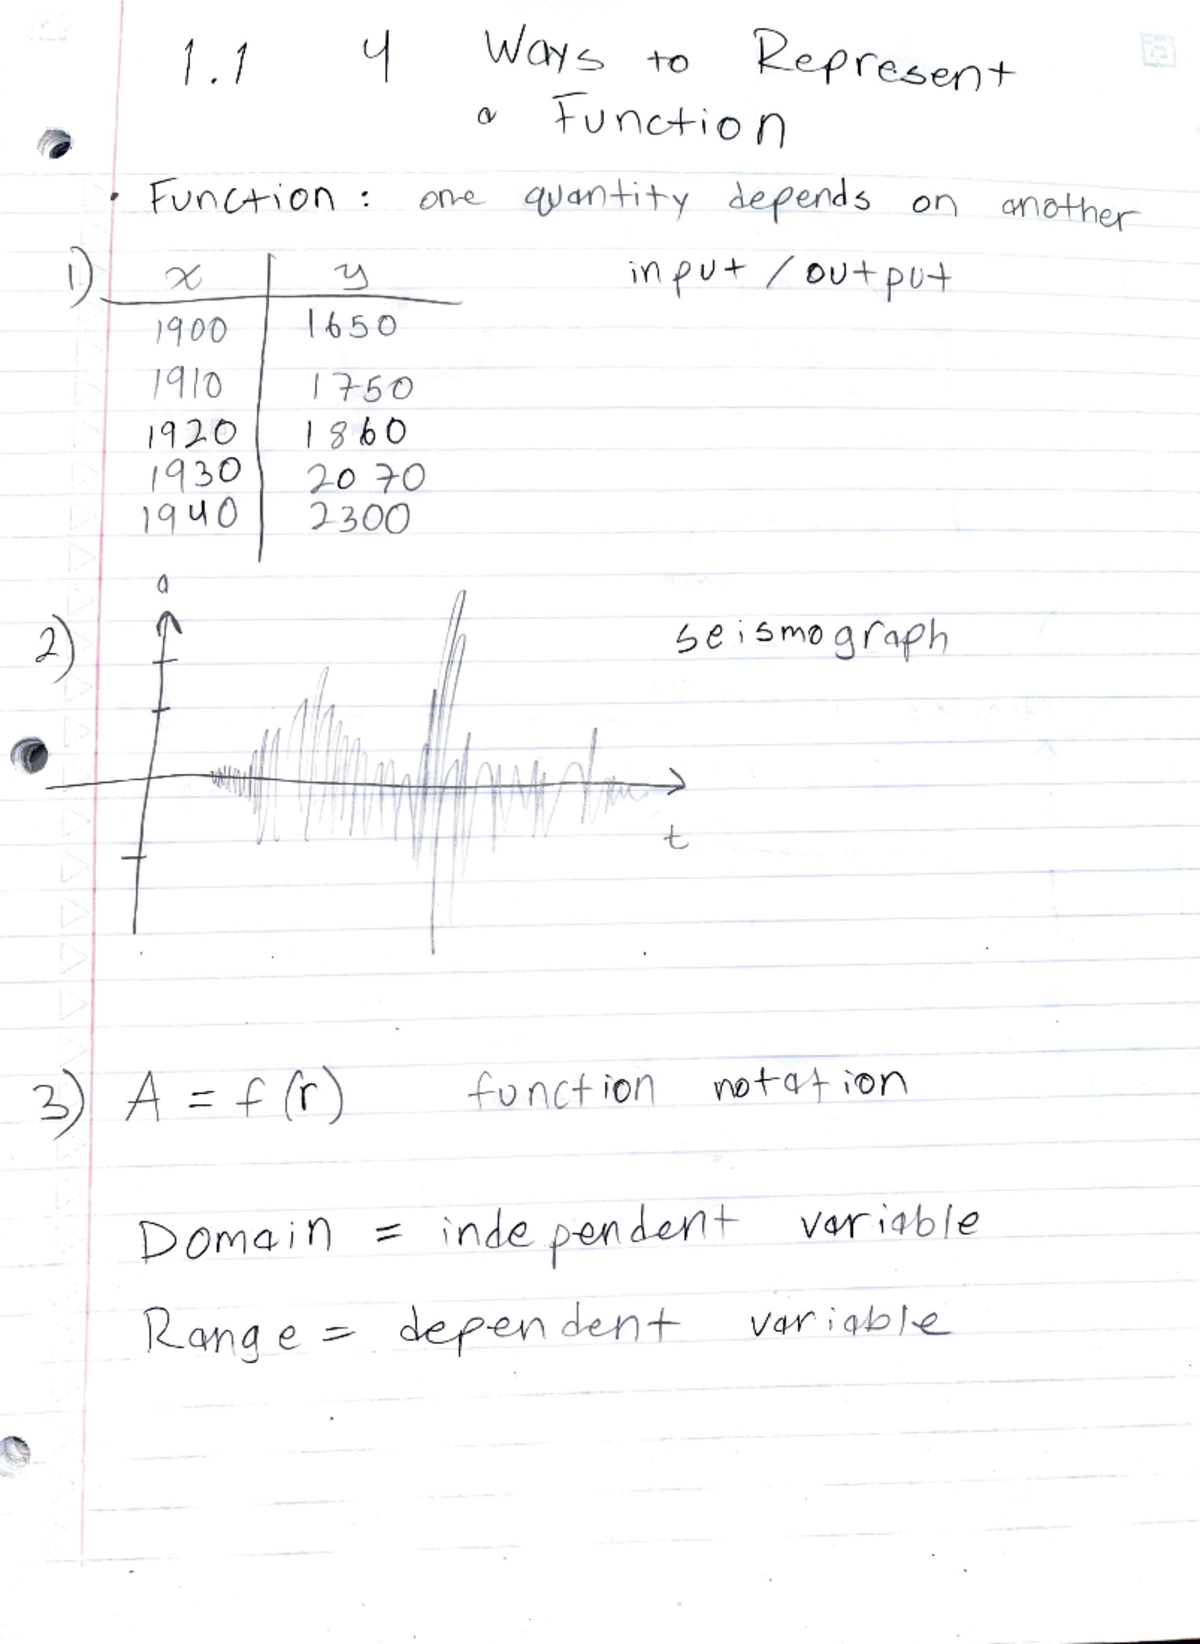 1.1 4 Ways to Represent
a Function
• Function: one quantity depends on another
1) x y input / output
1900 1650
1910 1750
1920 1860
1930 2070
1940 2300
a
2) seismograph
t
3) A = f(r) function notation
Domain = independent variable
Range = dependent variable